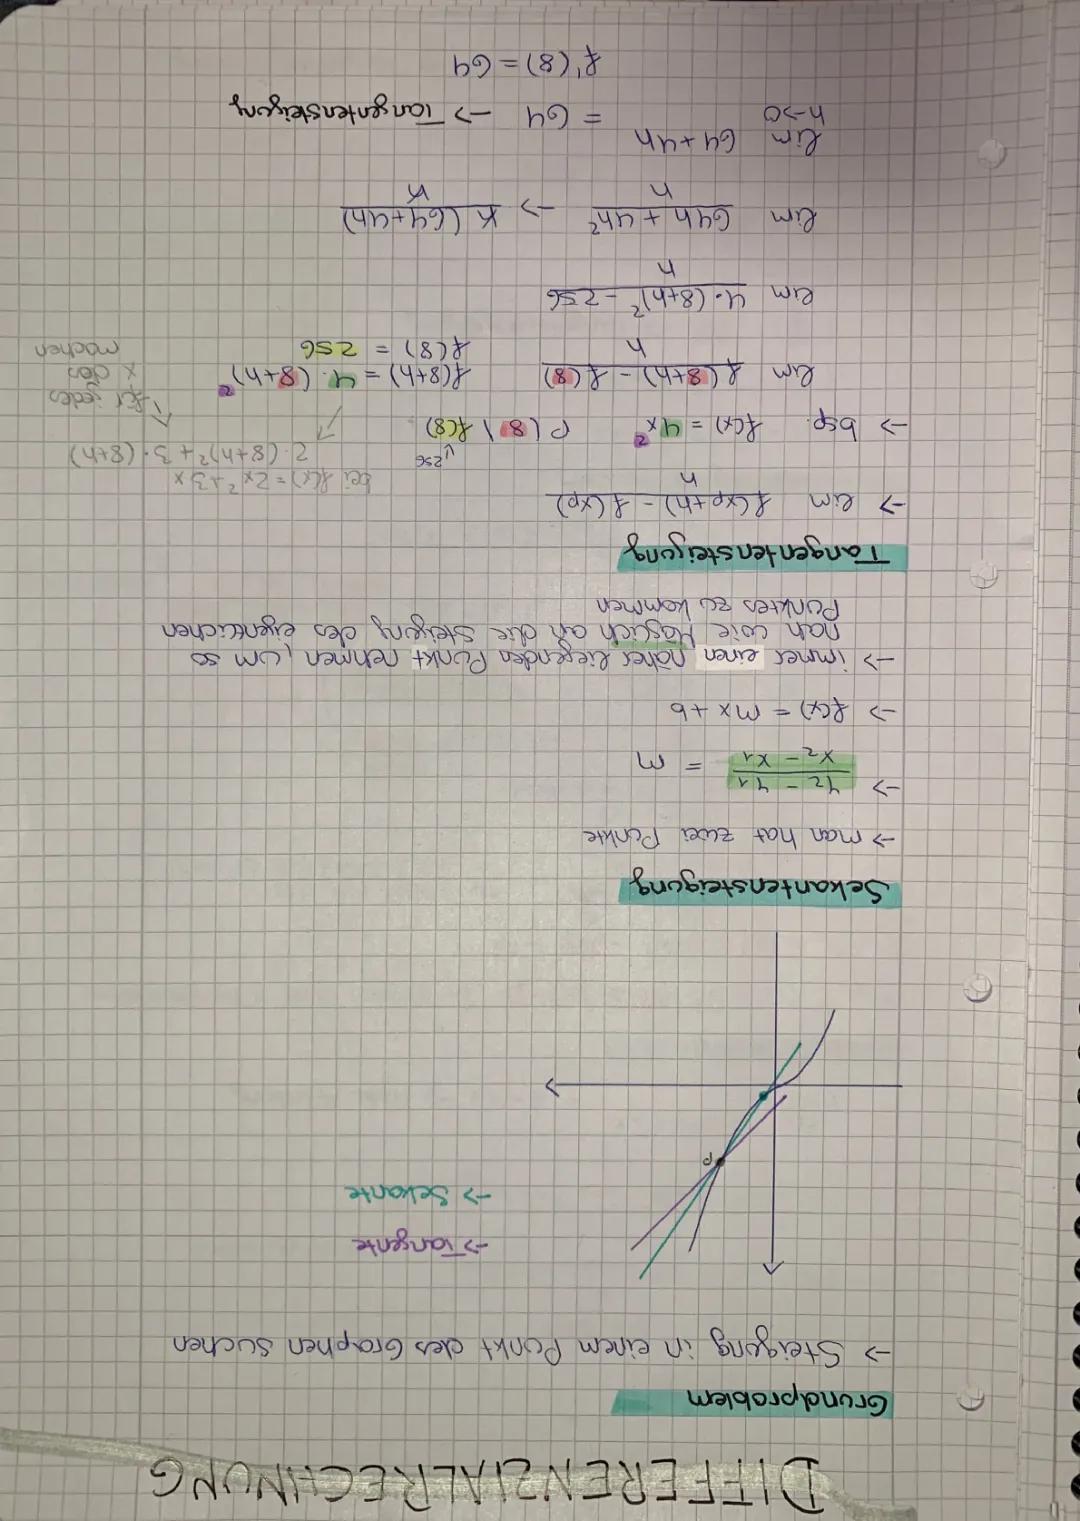 DIFFERENZIALRECHNUNG
Grundproblem
-> Steigung in einem Punkt des Graphen suchen
-> Tangente
-> Sekante
P
Sekantensteigung
-> man hat zwei Punkte
-> y2 - y1 / x2 - x1 = m
-> f(x) = mx + b
-> immer einen näher liegenden Punkt nehmen, um so
nah wie Möglich an die Steigung des eigentlichen
Punktes zu kommen
Tangentensteigung
-> lim f(xp+h) - f(xp) / h
bei f(x) = 2x² + 3x
2·(8+h)² + 3·(8+h)
-> bsp. f(x) = 4x² P(8 \ f(8))
↳ 256
↑ für jedes
x das
machen
lim f(8+h) - f(8) / h f(8+h) = 4·(8+h)²
f(8) = 256
lim 4·(8+h)² - 256 / h
lim 64h + 4h² / h -> h(64+4h) / h
lim h->0 64+4h = 64 -> Tangentensteigung
f'(8) = 64